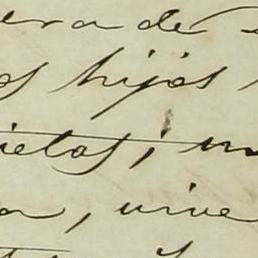 era de
os hijos
ietas; un
a, vive